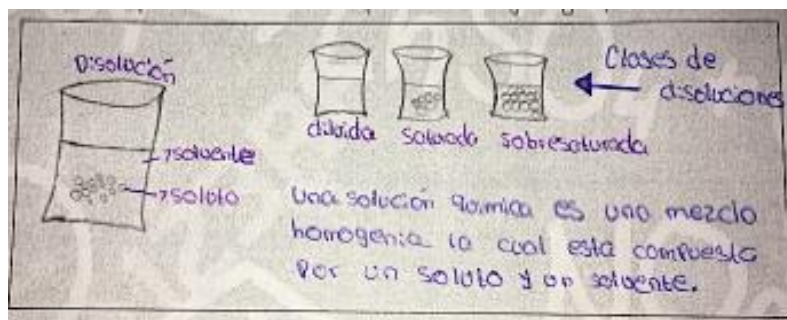 Disolución
solvente
soluto
diluida saturada sobresaturada
Clases de
disoluciones
Una solución química es una mezcla
homogenia la cual está compuesta
Por un soluto y un solvente.